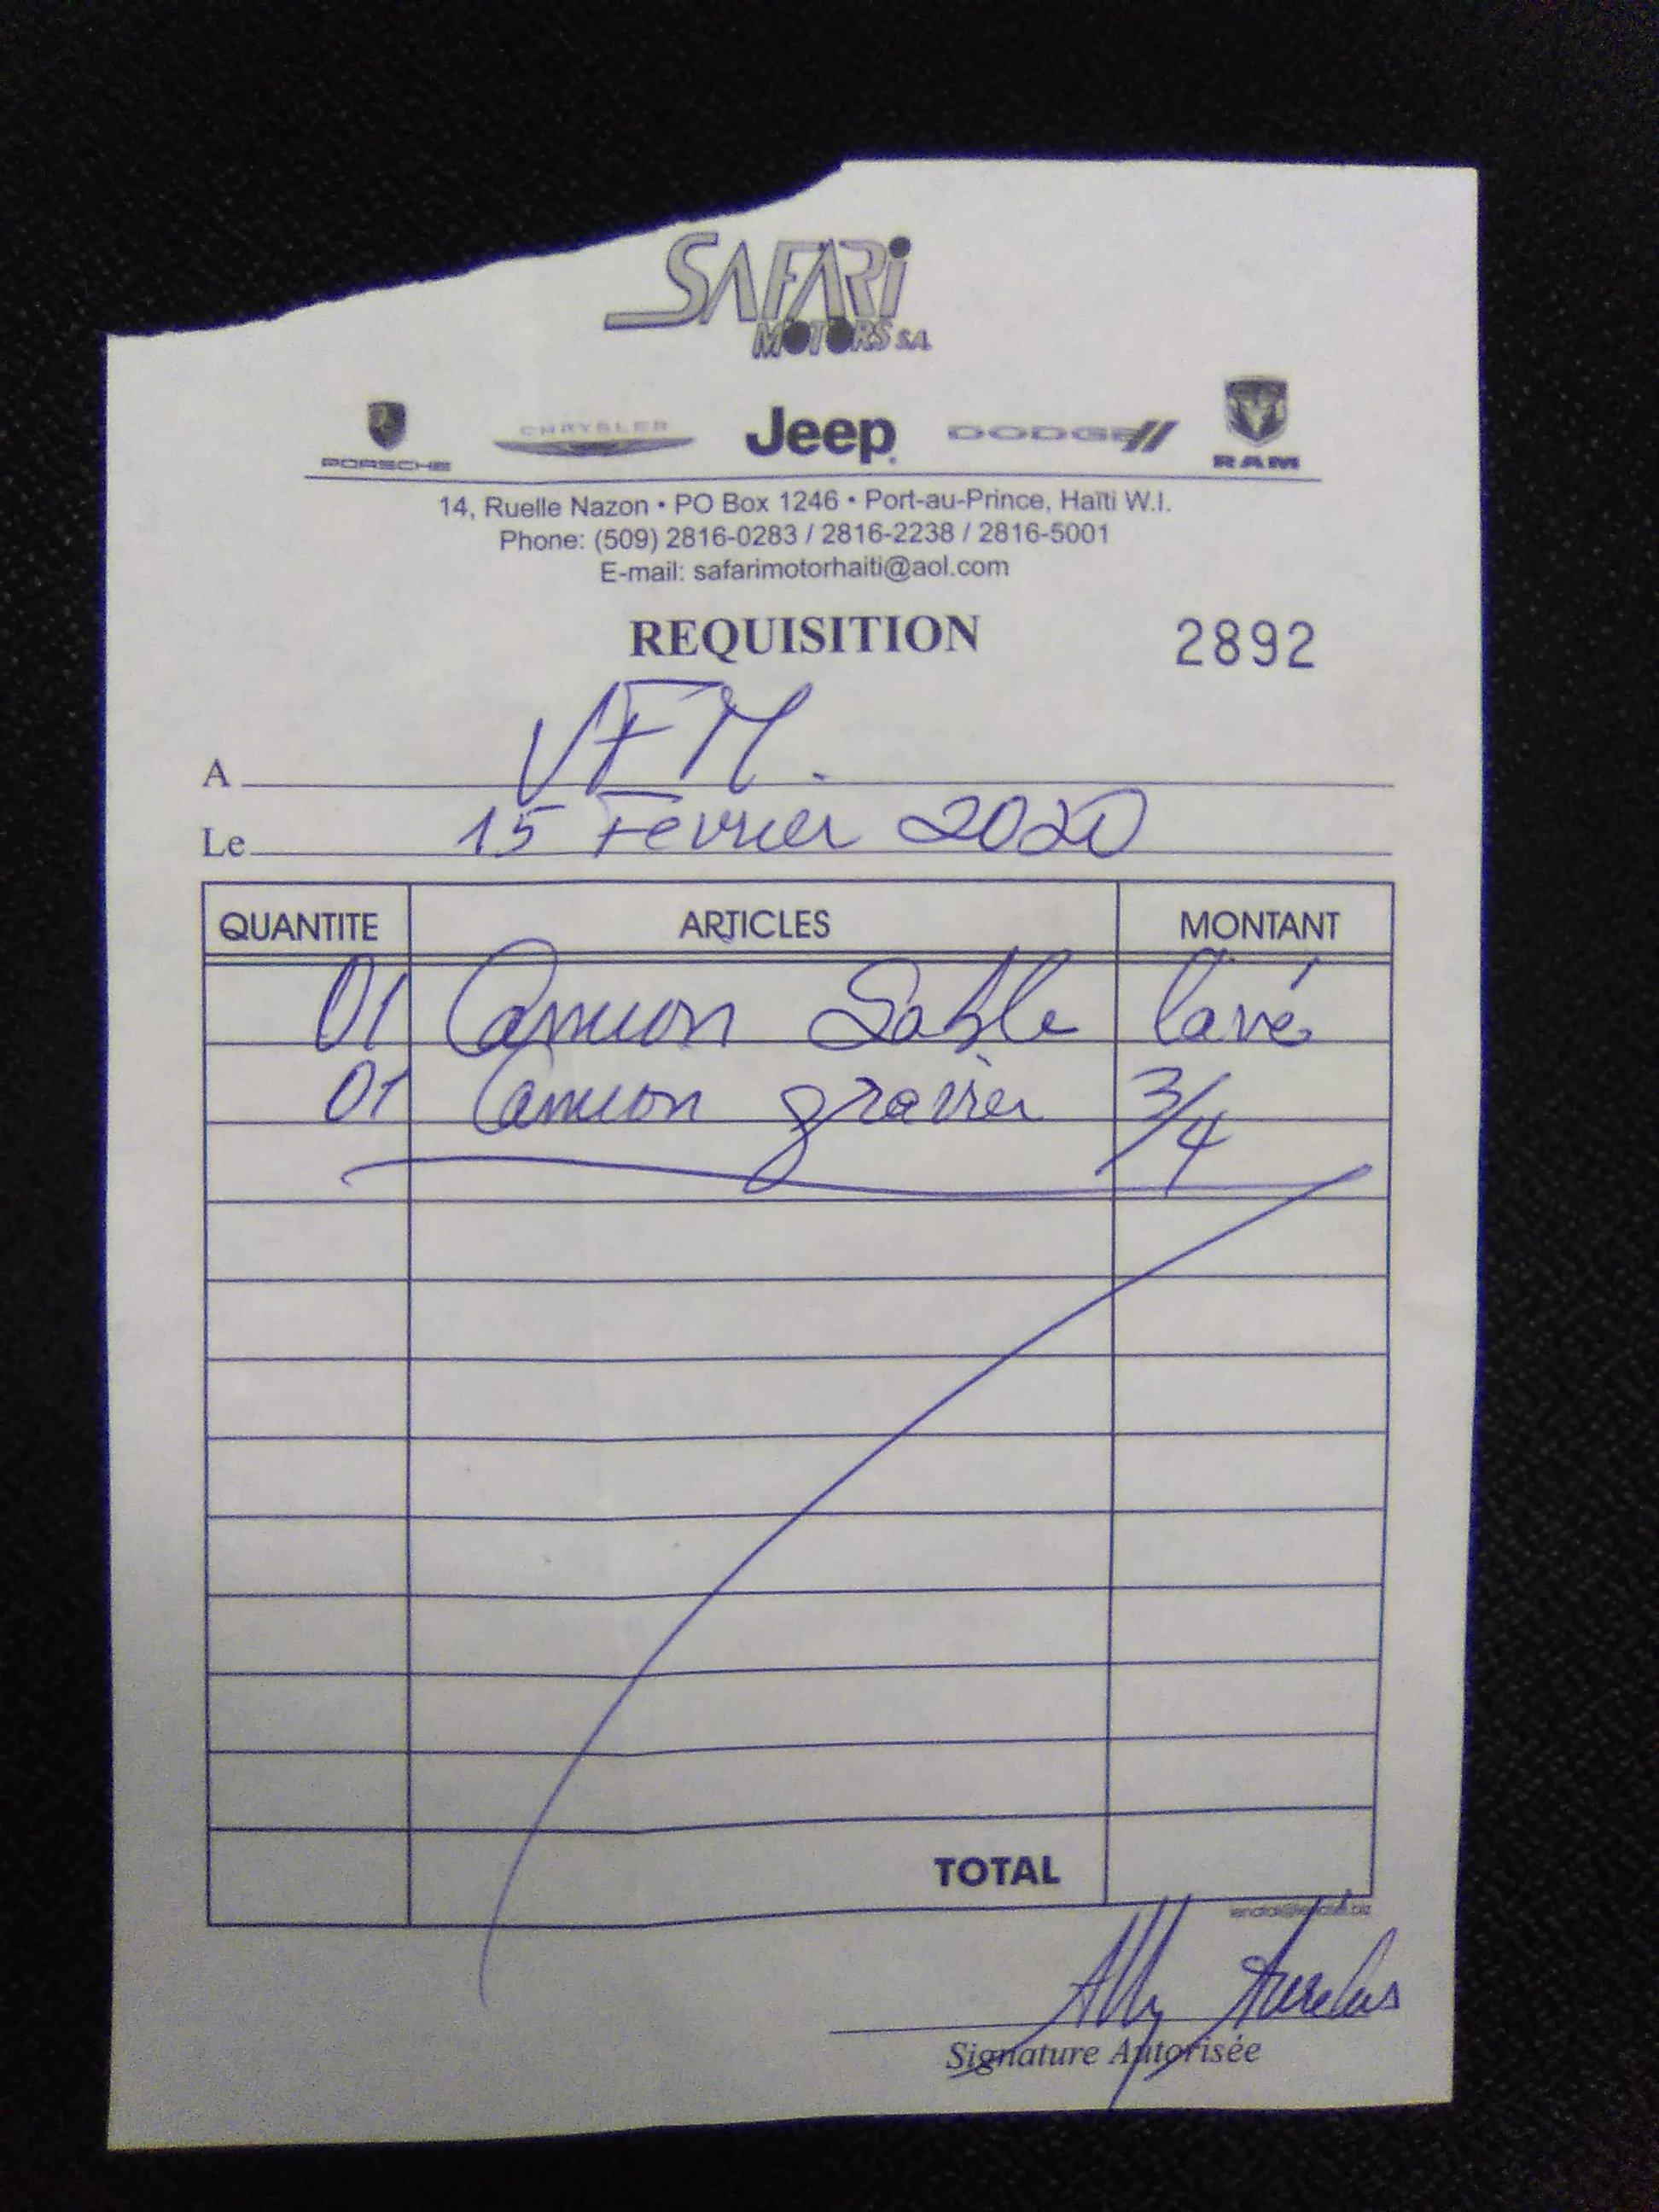 SAFARI
MOTORS S.A.
PORSCHE CHRYSLER Jeep DODGE RAM
14, Ruelle Nazon • PO Box 1246 • Port-au-Prince, Haïti W.I.
Phone: (509) 2816-0283 / 2816-2238 / 2816-5001
E-mail: safarimotorhaiti@aol.com
REQUISITION 2892
A VFM.
Le 15 Fevrier 2020
QUANTITE ARTICLES MONTANT
01 Camion Sable lavé
01 Camion gravier 3/4
TOTAL
Signature Autorisée